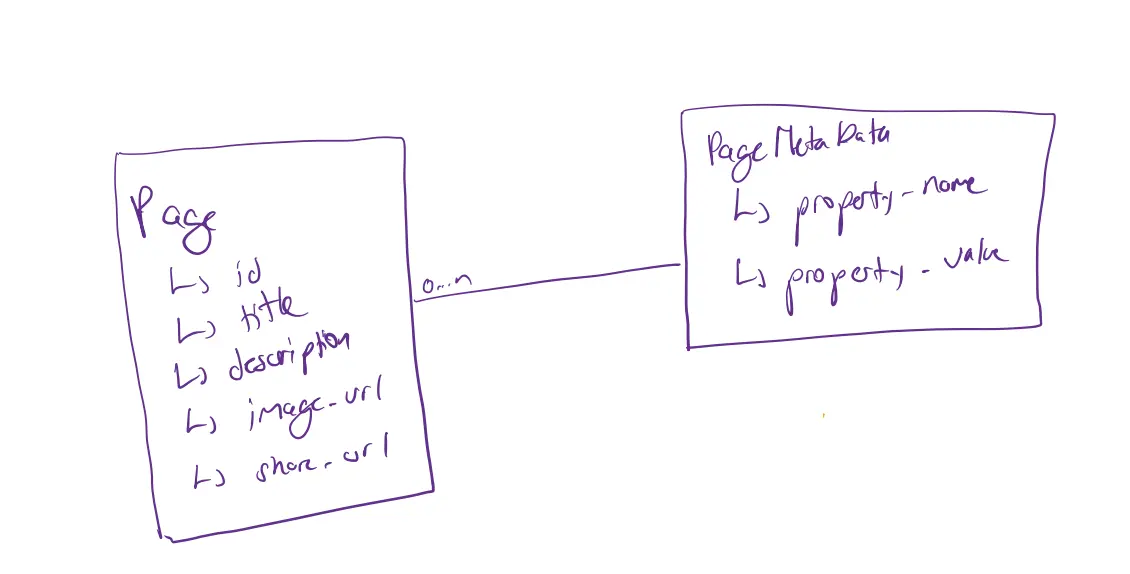 Page
↳ id
↳ title
↳ description
↳ image_url
↳ share_url
0...n
PageMetaData
↳ property_name
↳ property_value